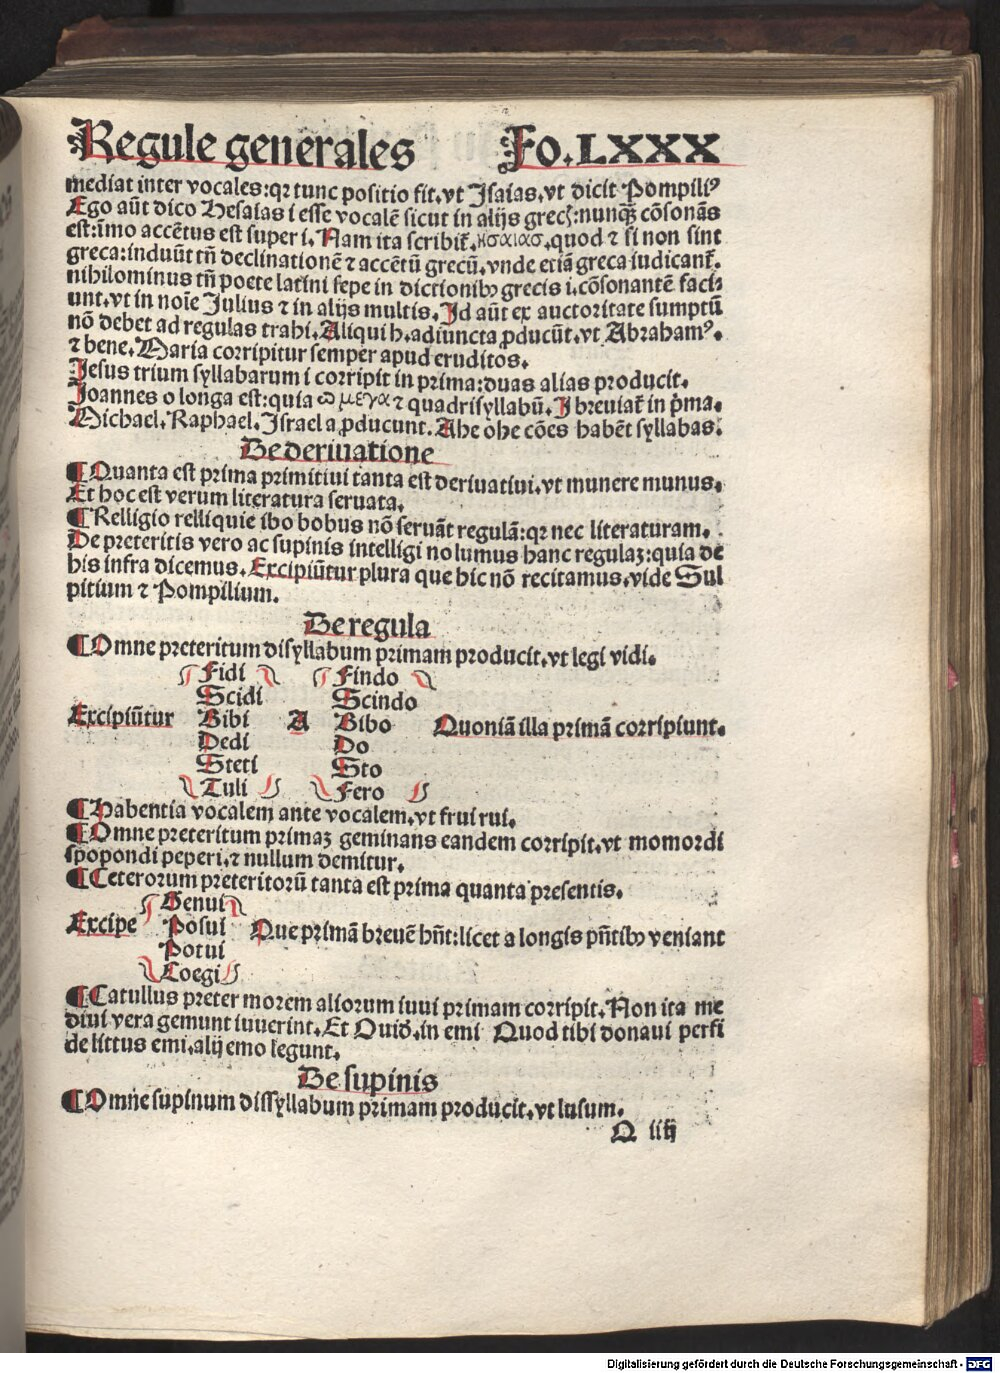 Regule generales Fo. LXXX
mediat inter vocales: qꝛ tunc positio fit. vt Isaias. vt dicit Pompiliꝰ
Ego aūt dico Hesaias i esse vocalē sicut in alijs grecꝭ: nunqꝫ cōsonās
est: imo accētus est super i. Nam ita scribit̄. ησαιασ. quod ⁊ si non sint
greca: induūt tn̄ declinationē ⁊ accētū grecū. vnde etiā greca iudicant̄.
nihilominus tn̄ poete latini sepe in dictionibꝰ grecis i. cōsonantē faci⸗
unt. vt in noīe Julius ⁊ in alijs multis. Id aūt ex auctoritate sumptū
nō debet ad regulas trahi. Aliqui h. adiuncta ꝓducūt. vt Abrahamꝰ.
⁊ bene. Maria corripitur semper apud eruditos.
Jesus trium syllabarum i corripit in prima: duas alias producit.
Joannes o longa est: quia ω μεγα ⁊ quadrisyllabū. I breuiat̄ in p̄ma.
Michael. Raphael. Israel a ꝓducunt. Ahe ohe cōes habēt syllabas.
De deriuatione
¶ Quanta est prima primitiui tanta est deriuatiui. vt munere munus.
Et hoc est verum literatura seruata.
¶ Relligio relliquie ibo bobus nō seruāt regulā: qꝛ nec literaturam.
De preteritis vero ac supinis intelligi nolumus hanc regulaꝫ: quia de
his infra dicemus. Excipiūtur plura que hic nō recitamus. vide Sul
pitium ⁊ Pompilium.
De regula
¶ Omne preteritum disyllabum primam producit. vt legi vidi.
Fidi Findo
Scidi Scindo
Excipiūtur Bibi A Bibo Quoniā illa primā corripiunt.
Dedi Do
Steti Sto
Tuli Fero
¶ Habentia vocalem ante vocalem. vt frui rui.
¶ Omne preteritum primaꝫ geminans eandem corripit. vt momordi
spopondi peperi. ⁊ nullum demitur.
¶ Ceterorum preteritorū tanta est prima quanta presentis.
Genui
Excipe Posui Que primā breuē hn̄t: licet a longis pn̄tibꝰ veniant
Potui
Coegi
¶ Catullus preter morem aliorum iuui primam corripit. Non ita me
diui vera gemunt iuuerint. Et Ouid̄. in emi Quod tibi donaui perfi
de littus emi. alij emo legunt.
De supinis
¶ Omne supinum dissyllabum primam producit. vt lusum.
Q iiij
Digitalisierung gefördert durch die Deutsche Forschungsgemeinschaft - DFG